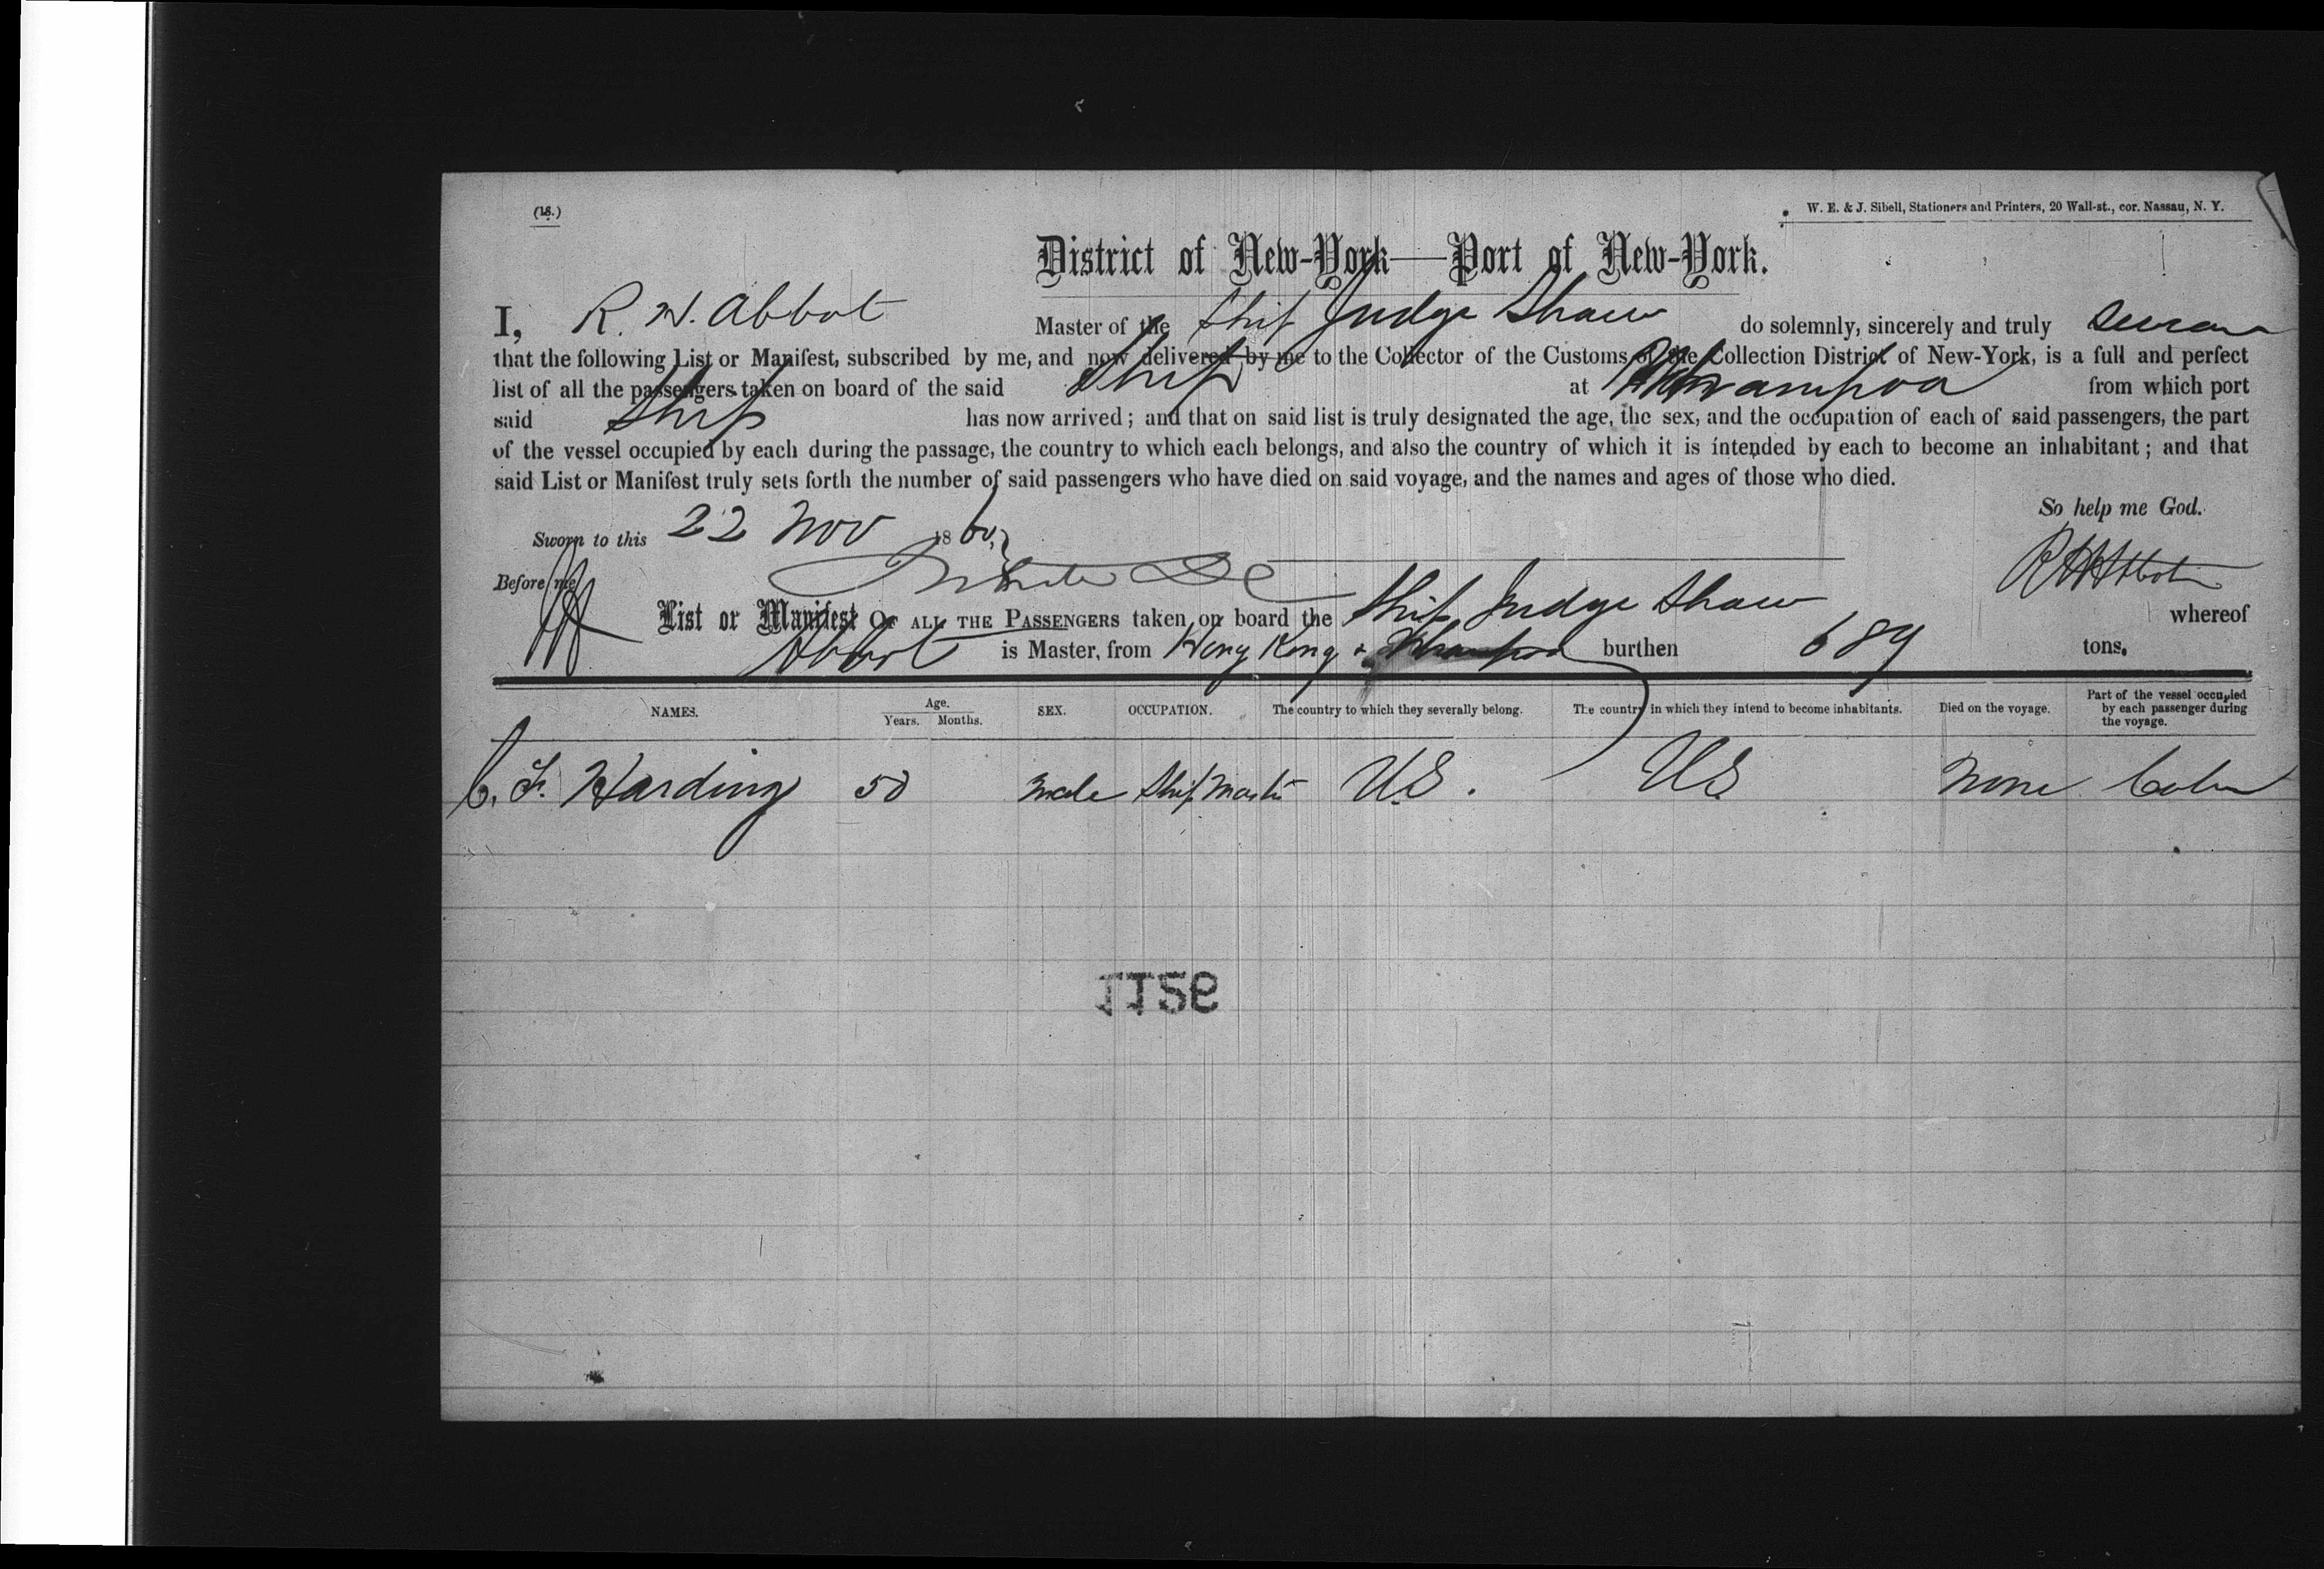 (18.)
W. E. & J. Sibell, Stationers and Printers, 20 Wall-st., cor. Nassau, N. Y.
District of New-York—Port of New-York.
I, R. W. Abbot Master of the Ship Judge Shaw do solemnly, sincerely and truly swear
that the following List or Manifest, subscribed by me, and now delivered by me to the Collector of the Customs of the Collection District of New-York, is a full and perfect
list of all the passengers taken on board of the said Ship at Whampoa from which port
said Ship has now arrived; and that on said list is truly designated the age, the sex, and the occupation of each of said passengers, the part
of the vessel occupied by each during the passage, the country to which each belongs, and also the country of which it is intended by each to become an inhabitant; and that
said List or Manifest truly sets forth the number of said passengers who have died on said voyage, and the names and ages of those who died.
So help me God.
Sworn to this 22 Nov 1860
Before me
List or Manifest OF ALL THE PASSENGERS taken on board the Ship Judge Shaw whereof
Abbot is Master, from Hong Kong & Whampoa burthen 689 tons.
NAMES. Age. Years. Months. SEX. OCCUPATION. The country to which they severally belong. The country in which they intend to become inhabitants. Died on the voyage. Part of the vessel occupied by each passenger during the voyage.
C. F. Harding 50 Male Ship Master U.S. U.S. None Cabin
1156